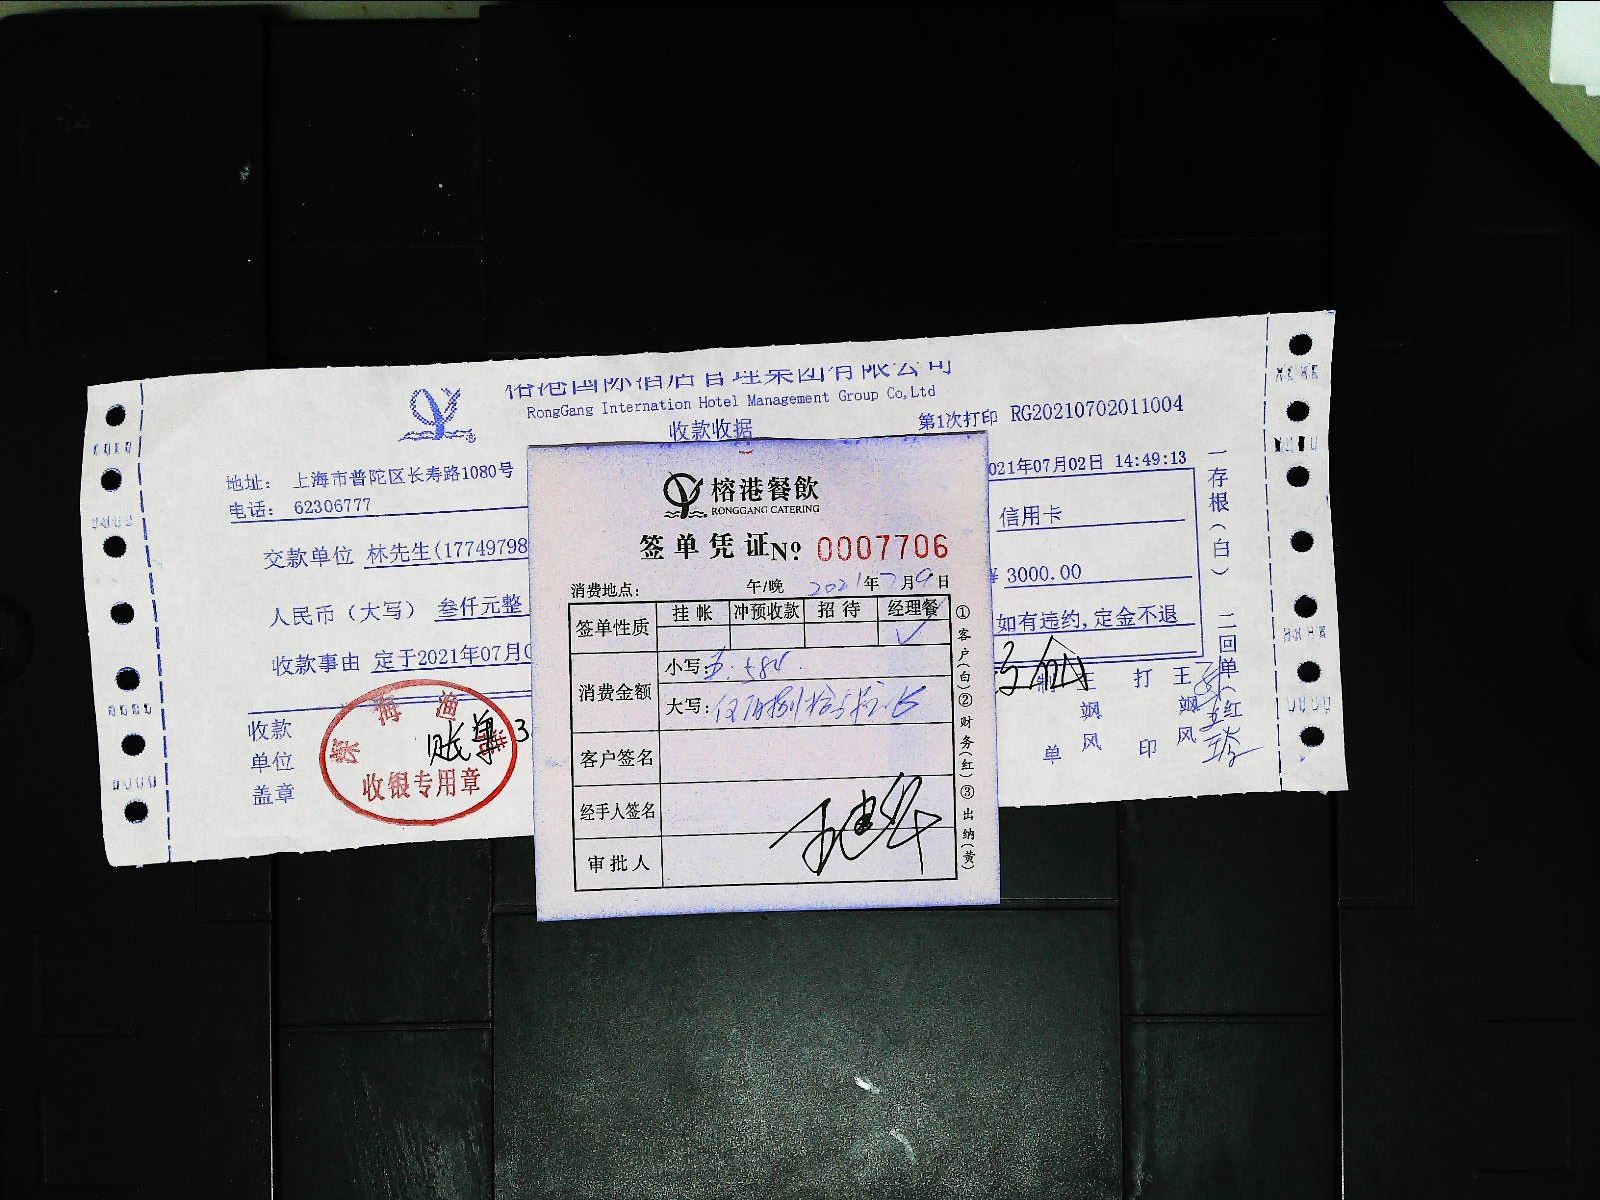 榕港国际酒店管理集团有限公司
RongGang Internation Hotel Management Group Co,Ltd
收款收据
第1次打印 RG20210702011004
地址： 上海市普陀区长寿路1080号
电话： 62306777
021年07月02日 14:49:13
交款单位 林先生(17749798
信用卡
人民币（大写） 叁仟元整
¥ 3000.00
收款事由 定于2021年07月0
如有违约,定金不退
收款
单位
盖章
收银专用章
王飒风
打印
王飒风
一存根(白) 二回单(红
榕港餐飲
RONGGANG CATERING
签单凭证№ 0007706
消费地点： 午/晚 2021年7月9日
签单性质 挂帐 冲预收款 招待 经理餐
✓
消费金额 小写:
大写:
客户签名
经手人签名
审批人
①客户(白)②财务(红)③出纳(黄)